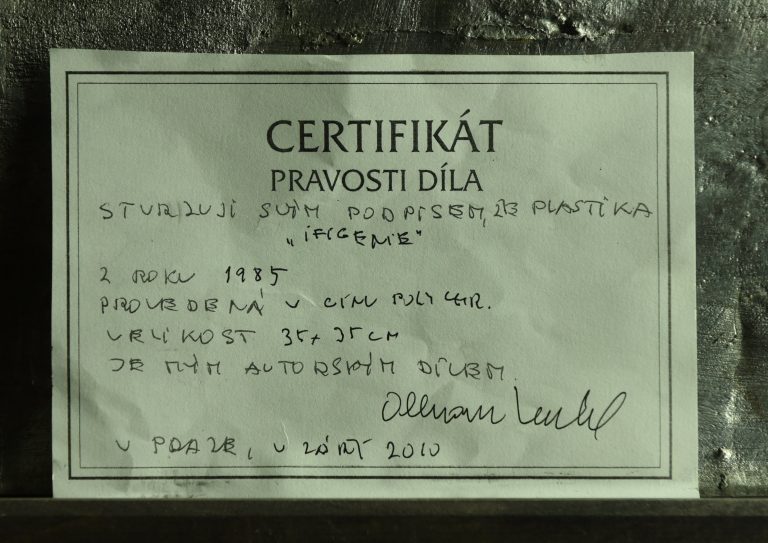 CERTIFIKÁT
PRAVOSTI DÍLA
STVRZUJI SVÝM PODPISEM, ŽE PLASTIKA
„IFIGENIE"
Z ROKU 1985
PROVEDENÁ V CÍNU POLYCHR.
VELIKOST 35x35 CM
JE MÝM AUTORSKÝM DÍLEM.
V PRAZE, V ZÁŘÍ 2010